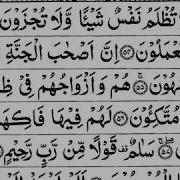 تُظْلَمُ نَفْسٌ شَيْـًٔا وَّلَا تُجْزَوْنَ
عْمَلُوْنَ ﴿٥٤﴾ اِنَّ اَصْحٰبَ الْجَنَّةِ
هُوْنَ ﴿٥٥﴾ هُمْ وَاَزْوَاجُهُمْ فِيْ ظِ
مُتَّكِـُٔوْنَ ﴿٥٦﴾ لَهُمْ فِيْهَا فَاكِهَ
﴿٥٧﴾ سَلٰمٌ قَوْلًا مِّنْ رَّبٍّ رَّحِيْمٍ ﴿٥٨﴾